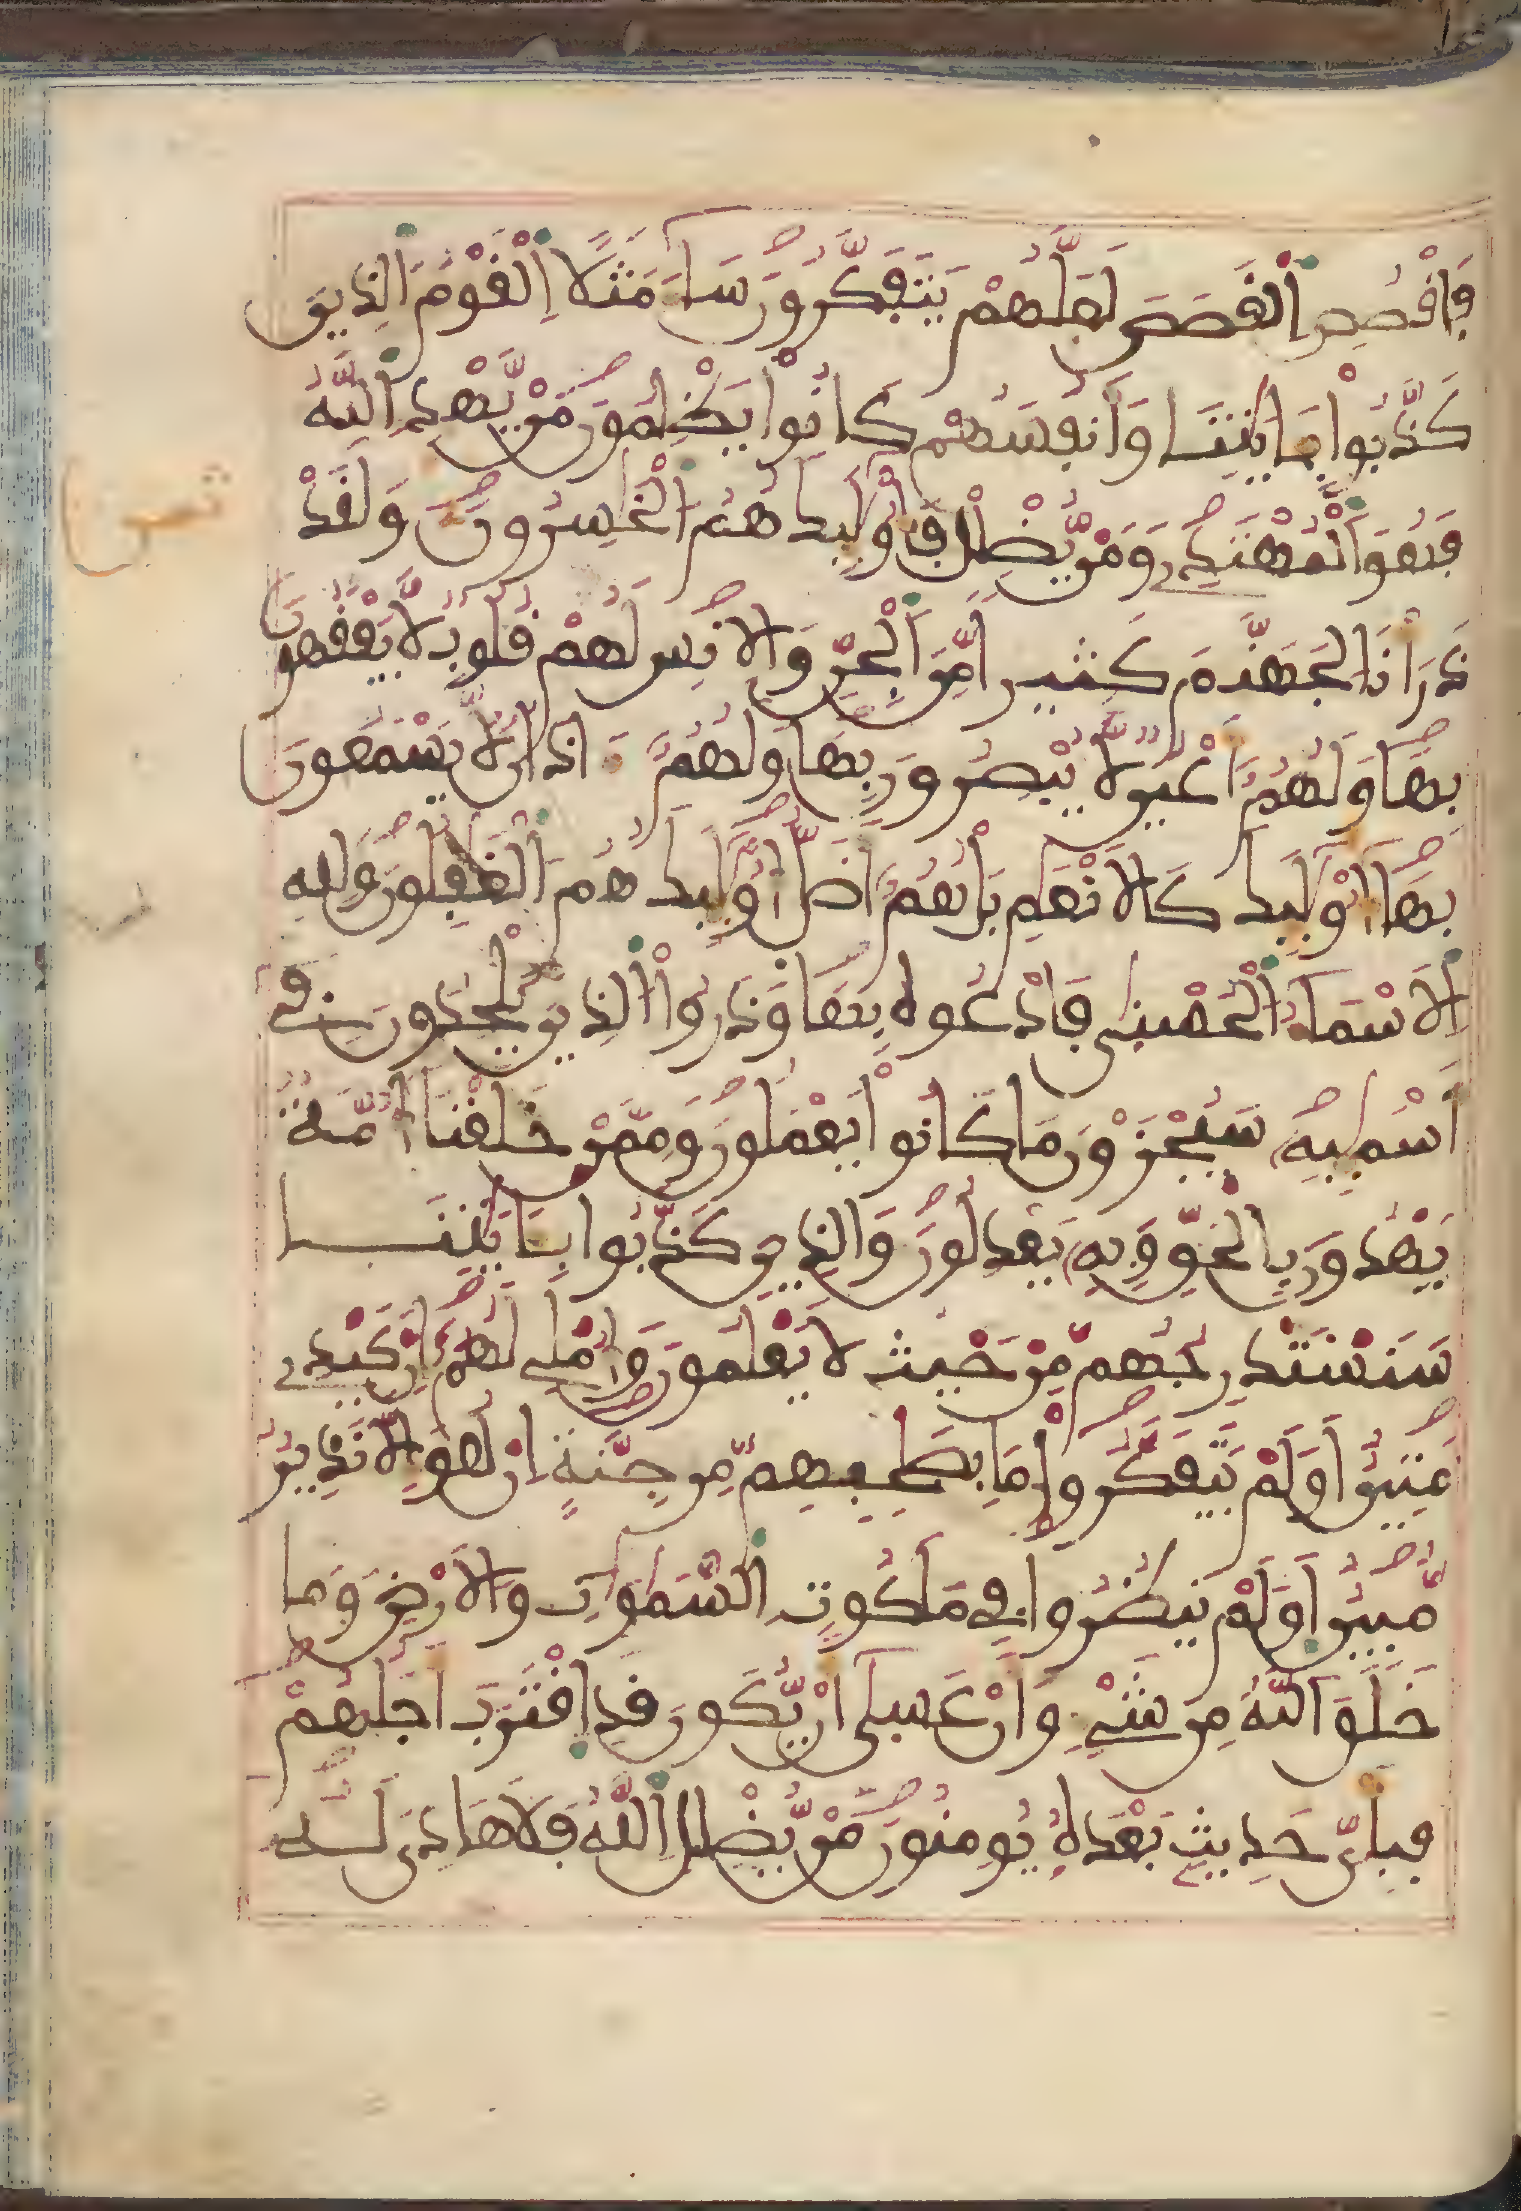 فَاقْصُصِ اِلْقَصَصَ لَعَلَّهُمْ يَتَفَكَّرُونَ سَآءَ مَثَلًا اِلْقَوْمُ الذِينَ
كَذَّبُوا بِـَٔايَٰتِنَا وَأَنفُسَهُمْ كَانُوا يَظْلِمُونَ مَنْ يَّهْدِ اِللَّهُ
فَهُوَ اَلْمُهْتَدِے وَمَنْ يُّضْلِلْ فَأُوْلَٰٓئِكَ هُمُ الْخَٰسِرُونَ وَلَقَدْ
ذَرَأْنَا لِجَهَنَّمَ كَثِيرًا مِّنَ اَلْجِنِّ وَالِانسِ لَهُمْ قُلُوبٌ لَّا يَفْقَهُونَ
بِهَا وَلَهُمُۥٓ أَعْيُنٌ لَّا يُبْصِرُونَ بِهَا وَلَهُمُۥٓ ءَاذَانٌ لَّا يَسْمَعُونَ
بِهَآ أُوْلَٰٓئِكَ كَالَانْعَٰمِ بَلْ هُمُۥٓ أَضَلُّ أُوْلَٰٓئِكَ هُمُ اَلْغَٰفِلُونَ وَلِلهِ
اِلَاسْمَآءُ اَلْحُسْنَىٰ فَادْعُوهُ بِهَا وَذَرُوا اُلذِينَ يُلْحِدُونَ فِےٓ
أَسْمَٰٓئِهِۦ سَيُجْزَوْنَ مَا كَانُوا يَعْمَلُونَ وَمِمَّنْ خَلَقْنَآ أُمَّةٌ
يَهْدُونَ بِالْحَقِّ وَبِهِۦ يَعْدِلُونَ وَالذِينَ كَذَّبُوا بِـَٔايَٰتِنَا
سَنَسْتَدْرِجُهُم مِّنْ حَيْثُ لَا يَعْلَمُونَ وَأُمْلِے لَهُمُۥٓ إِنَّ كَيْدِے
مَتِينٌ أَوَلَمْ يَتَفَكَّرُوا مَا بِصَٰحِبِهِم مِّن جِنَّةٍ اِنْ هُوَ إِلَّا نَذِيرٌ
مُّبِينٌ أَوَلَمْ يَنظُرُوا فِے مَلَكُوتِ اِلسَّمَٰوَٰتِ وَالَارْضِ وَمَا
خَلَقَ اَللَّهُ مِن شَےْءٍ وَأَنْ عَسَىٰٓ أَنْ يَّكُونَ قَدِ اِقْتَرَبَ أَجَلُهُمْ
فَبِأَيِّ حَدِيثٍ بَعْدَهُۥ يُومِنُونَ مَنْ يُّضْلِلِ اِللَّهُ فَلَا هَادِيَ لَهُۥ